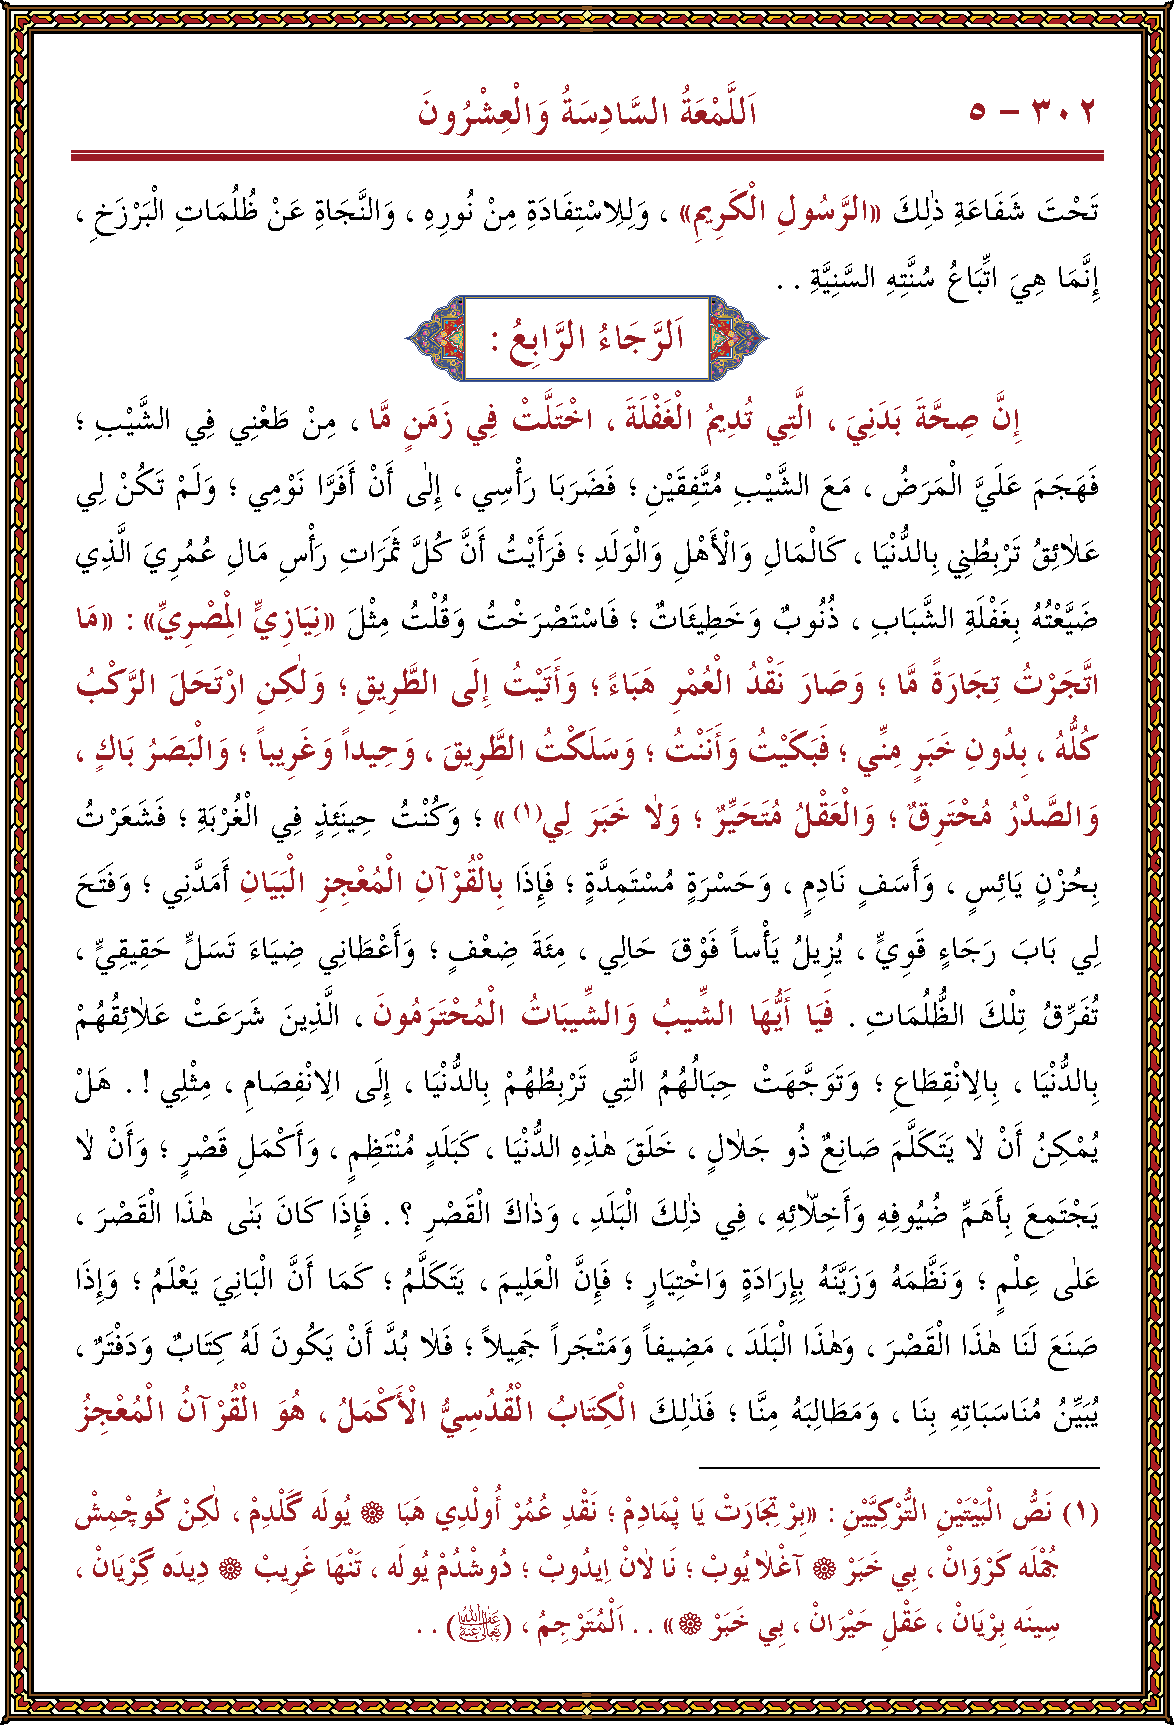 ٣٠٢ - ٥ اَللَّمْعَةُ السَّادِسَةُ وَالْعِشْرُونَ
تَحْتَ شَفَاعَةِ ذٰلِكَ «الرَّسُولِ الْكَرِيمِ» ، وَلِلِاسْتِفَادَةِ مِنْ نُورِهِ ، وَالنَّجَاةِ عَنْ ظُلُمَاتِ الْبَرْزَخِ ،
إِنَّمَا هِيَ اتِّبَاعُ سُنَّتِهِ السَّنِيَّةِ . .
اَلرَّجَاءُ الرَّابِعُ :
إِنَّ صِحَّةَ بَدَنِيَ ، الَّتِي تُدِيمُ الْغَفْلَةَ ، اخْتَلَّتْ فِي زَمَنٍ مَّا ، مِنْ طَعْنِي فِي الشَّيْبِ ؛
فَهَجَمَ عَلَيَّ الْمَرَضُ ، مَعَ الشَّيْبِ مُتَّفِقَيْنِ ؛ فَضَرَبَا رَأْسِي ، إِلٰى أَنْ أَفَرَّا نَوْمِي ؛ وَلَمْ تَكُنْ لِي
عَلاٰئِقُ تَرْبِطُنِي بِالدُّنْيَا ، كَالْمَالِ وَالْأَهْلِ وَالْوَلَدِ ؛ فَرَأَيْتُ أَنَّ كُلَّ ثَمَرَاتِ رَأْسِ مَالِ عُمُرِيَ الَّذِي
ضَيَّعْتُهُ بِغَفْلَةِ الشَّبَابِ ، ذُنُوبٌ وَخَطِيئَاتٌ ؛ فَاسْتَصْرَخْتُ وَقُلْتُ مِثْلَ «نِيَازِيٍّ الْمِصْرِيِّ» : «مَا
اتَّجَرْتُ تِجَارَةً مَّا ؛ وَصَارَ نَقْدُ الْعُمْرِ هَبَاءً ؛ وَأَتَيْتُ إِلَى الطَّرِيقِ ؛ وَلٰكِنِ ارْتَحَلَ الرَّكْبُ
كُلُّهُ ، بِدُونِ خَبَرٍ مِنِّي ؛ فَبَكَيْتُ وَأَنَنْتُ ؛ وَسَلَكْتُ الطَّرِيقَ ، وَحِيداً وَغَرِيباً ؛ وَالْبَصَرُ بَاكٍ ،
وَالصَّدْرُ مُحْتَرِقٌ ؛ وَالْعَقْلُ مُتَحَيِّرٌ ؛ وَلاٰ خَبَرَ لِي(١) » ؛ وَكُنْتُ حِينَئِذٍ فِي الْغُرْبَةِ ؛ فَشَعَرْتُ
بِحُزْنٍ يَائِسٍ ، وَأَسَفٍ نَادِمٍ ، وَحَسْرَةٍ مُسْتَمِدَّةٍ ؛ فَإِذَا بِالْقُرْآنِ الْمُعْجِزِ الْبَيَانِ أَمَدَّنِي ؛ وَفَتَحَ
لِي بَابَ رَجَاءٍ قَوِيٍّ ، يُزِيلُ يَأْساً فَوْقَ حَالِي ، مِئَةَ ضِعْفٍ ؛ وَأَعْطَانِي ضِيَاءَ تَسَلٍّ حَقِيقِيٍّ ،
تُفَرِّقُ تِلْكَ الظُّلُمَاتِ . فَيَا أَيُّهَا الشِّيبُ وَالشِّيبَاتُ الْمُحْتَرَمُونَ ، الَّذِينَ شَرَعَتْ عَلاٰئِقُهُمْ
بِالدُّنْيَا ، بِالِانْقِطَاعِ ؛ وَتَوَجَّهَتْ حِبَالُهُمُ الَّتِي تَرْبِطُهُمْ بِالدُّنْيَا ، إِلَى الِانْفِصَامِ ، مِثْلِي ! . هَلْ
يُمْكِنُ أَنْ لاٰ يَتَكَلَّمَ صَانِعٌ ذُو جَلاٰلٍ ، خَلَقَ هٰذِهِ الدُّنْيَا ، كَبَلَدٍ مُنْتَظِمٍ ، وَأَكْمَلِ قَصْرٍ ؛ وَأَنْ لاٰ
يَجْتَمِعَ بِأَهَمِّ ضُيُوفِهِ وَأَخِلاّٰئِهِ ، فِي ذٰلِكَ الْبَلَدِ ، وَذٰاكَ الْقَصْرِ ؟ . فَإِذَا كَانَ بَنٰى هٰذَا الْقَصْرَ ،
عَلٰى عِلْمٍ ؛ وَنَظَّمَهُ وَزَيَّنَهُ بِإِرَادَةٍ وَاخْتِيَارٍ ؛ فَإِنَّ الْعَلِيمَ ، يَتَكَلَّمُ ؛ كَمَا أَنَّ الْبَانِيَ يَعْلَمُ ؛ وَإِذَا
صَنَعَ لَنَا هٰذَا الْقَصْرَ ، وَهٰذَا الْبَلَدَ ، مَضِيفاً وَمَتْجَراً جَمِيلاً ؛ فَلاٰ بُدَّ أَنْ يَكُونَ لَهُ كِتَابٌ وَدَفْتَرٌ ،
يُبَيِّنُ مُنَاسَبَاتِهِ بِنَا ، وَمَطَالِبَهُ مِنَّا ؛ فَذٰلِكَ الْكِتَابُ الْقُدُسِيُّ الْأَكْمَلُ ، هُوَ الْقُرْآنُ الْمُعْجِزُ
(١) نَصُّ الْبَيْتَيْنِ التُّرْكِيَّيْنِ : «بِرْ تِجَارَتْ يَا پْمَادِمْ ؛ نَقْدِ عُمُرْ أُولْدِي هَبَا ❁ يُولَه گَلْدِمْ ، لٰكِنْ كُوچْمِشْ
جُمْلَه كَرْوَانْ ، بِي خَبَرْ ❁ آغْلاٰيُوبْ ؛ نَا لاٰنْ اِيدُوبْ ؛ دُوشْدُمْ يُولَه ، تَنْهَا غَرِيبْ ❁ دِيدَه گِرْيَانْ ،
سِينَه بِرْيَانْ ، عَقْلِ حَيْرَانْ ، بِي خَبَرْ ❁» . . اَلْمُتَرْجِمُ ، (رَحْمَةُ اللهِ تَعَالَى عَلَيْهِ) . .